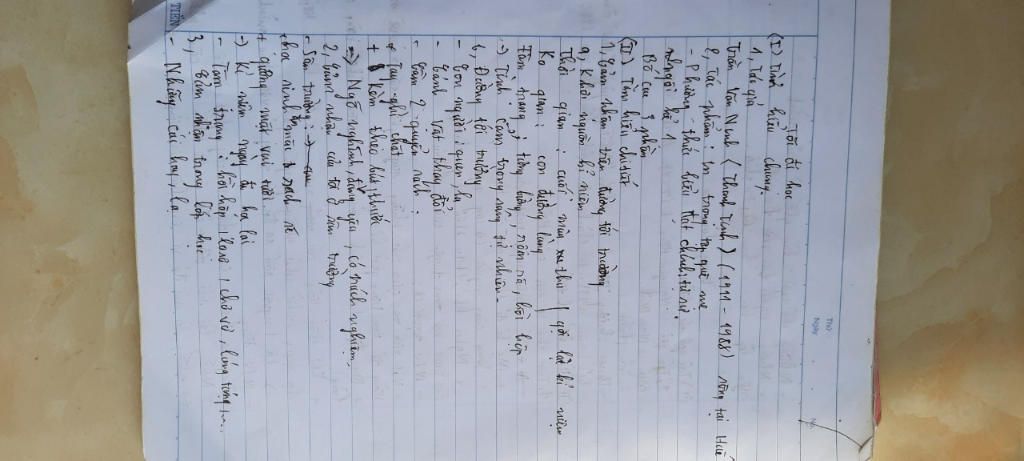 Tôi đi học
(I) Tìm hiểu chung.
1, Tác giả
Trần Văn Ninh (Thanh Tịnh) (1911 - 1988) sống tại Huế
2, Tác phẩm: In trong tập quê mẹ
- Phương thức biểu đạt chính: tự sự
- Ngôi kể 1
Bố cục 3 phần
(II) Tìm hiểu chi tiết
1, Cảm nhận trên đường tới trường
a, Khơi nguồn kỉ niệm
Thời gian: cuối mùa thu gợi lại kỉ niệm
Ko gian: con đường làng
Tâm trạng: tưng bừng, rộn rã, hồi hộp
-> Tình cảm trong sáng tự nhiên
b, Đường tới trường
- Con người: quen, lạ
- Cảnh vật thay đổi
- Cầm 2 quyển sách:
+ Tay ghì chặt
+ Kèm thêc bút, thước
=> Ngỡ nghĩnh, đáng yêu, có trách nghiệm
2, Cảm nhận của tớ ở sân trường
- Sân trường:
+ gương mặt vui tươi
-> Kỉ niệm ngày đi học lại
- Tâm trạng: hồi hộp, lo sợ, chơ vơ, lúng túng...
3, Cảm nhận trong lớp học
- Những cái hay, lạ
TIẾN
THỨ
NGÀY